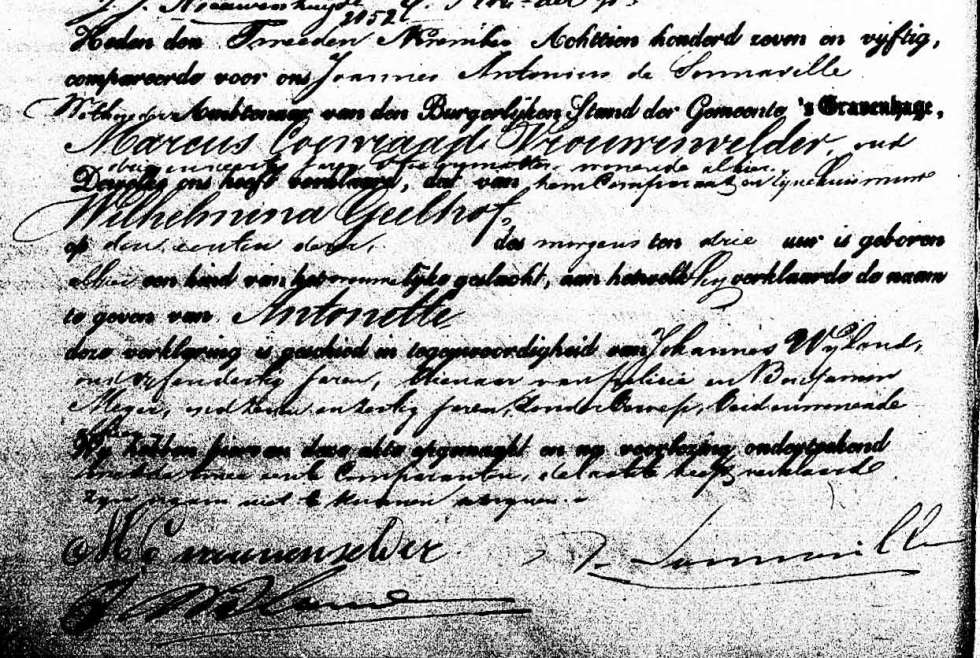 2052
Heden den Tweeden November Achttien honderd zeven en vijftig,
compareerde voor ons Joannes Antonius de Sonnaville
Wethouder Ambtenaar van den Burgerlijken Stand der Gemeente 's Gravenhage,
Marcus Coenraad Vrouwenvelder, oud
jaren, wonende alhier
Dewelke ons heeft verklaard, dat van hem Comparant en zijne huisvrouw
Wilhelmina Geelhof,
op den eersten dezer, des morgens ten drie uur is geboren
alhier een kind van het vrouwelijke geslacht, aan hetwelk hij verklaarde de naam
te geven van Antonette
deze verklaring is geschied in tegenwoordigheid van Johannes Wyland,
oud vijfendertig jaren, dienaar van policie en Benjamin
Meyer, oud en zestig jaren, zonder beroep, beide wonende
Wij hebben hiervan deze akte opgemaakt en na voorlezing onderteekend
met de twee eerste Comparanten, de laatste heeft verklaard
zijn naam niet te kunnen
M C vrouwenvelder
J. Wyland